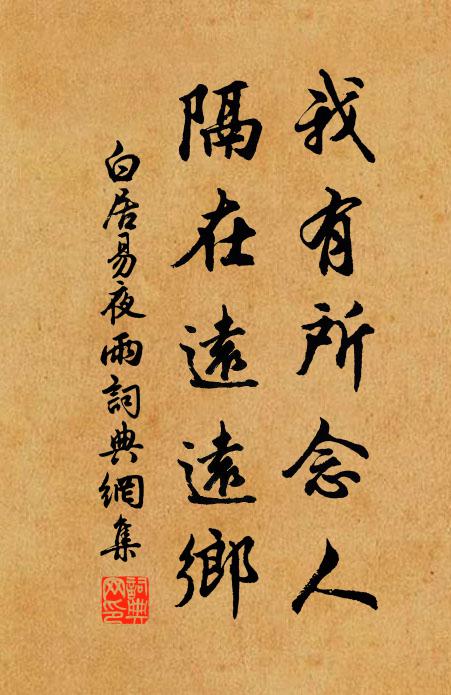 我有所念人
隔在遠遠鄉
白居易夜雨詞典網集
詞典網印